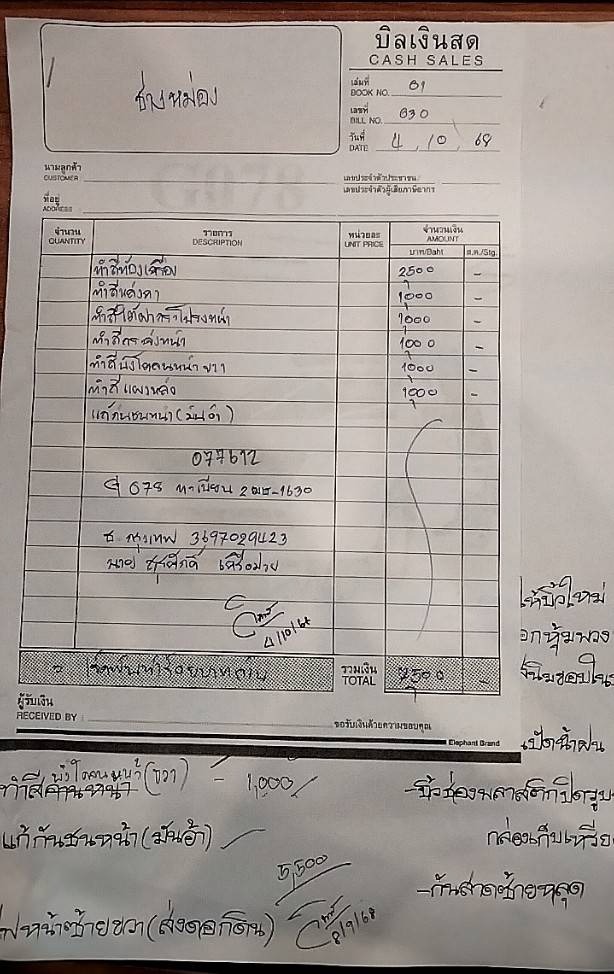 บิลเงินสด
CASH SALES
ช่างหม่อง
เล่มที่
BOOK NO. 01
เลขที่
BILL NO. 030
วันที่
DATE 4, 10, 68
นามลูกค้า
CUSTOMER
เลขประจำตัวประชาชน/
เลขประจำตัวผู้เสียภาษีอากร
ที่อยู่
ADDRESS
จำนวน รายการ หน่วยละ จำนวนเงิน
QUANTITY DESCRIPTION UNIT PRICE AMOUNT
บาท/Baht ส.ต./Stg.
ทำสีห้องเครื่อง 2500 -
ทำสีหลังคา 1,000 -
ทำสีใต้ฝากระโปรงหน้า 1,000 -
ทำสีกระจังหน้า 1,000 -
ทำสีบังโคลนหน้า ขวา 1,000 -
ทำสีแผงหลัง 1,000 -
แก้กันชนหน้า (มันอ้ำ)
077612
678 ทะเบียน 2ฒฮ-1630
ธ. กรุงเทพ 3697029423
นาย
4/10/68
รวมเงิน
TOTAL 7,500 -
ผู้รับเงิน
RECEIVED BY
ขอรับเงินด้วยความขอบคุณ
Elephant Brand
ให้บิ้วใหม่
เป็ดน้ำฝน
บังโคลนหน้า
ทำสี (ขวา) - 1,000/
แก้กันชนหน้า (มันอ้ำ)
กล่องเก็บเหรีย
5,500
-กันสาดซ้ายหลุด
หน้าซ้ายขวา (ส่งดอกดิน) 8/9/68